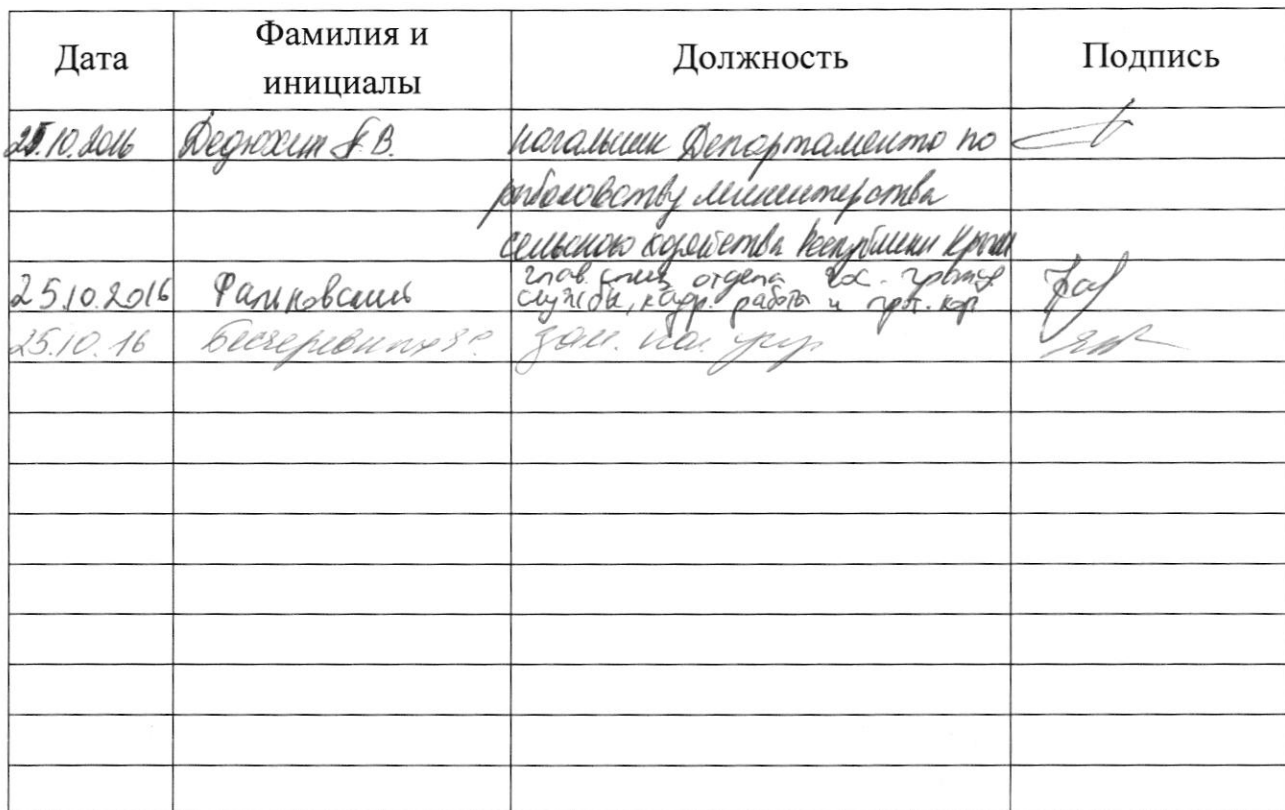 Дата Фамилия и инициалы Должность Подпись
25.10.2016 Дедюхин В. начальник Департамента по
рыболовству министерства
сельского хозяйства Республики Крым
25.10.2016 глав. спец отдела гос. гражд
службы, кадр. работы и прот. кор
25.10.16 зам. нач. упр